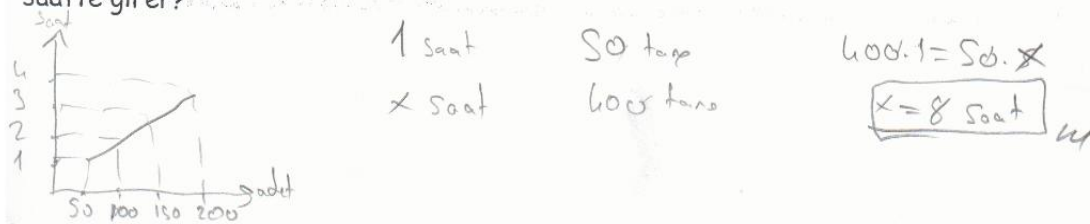 saatte girer?
saat
4
3
2
1
50 100 150 200
adet
1 saat 50 tane
x saat 400 tane
400.1=50.x
x=8 saat